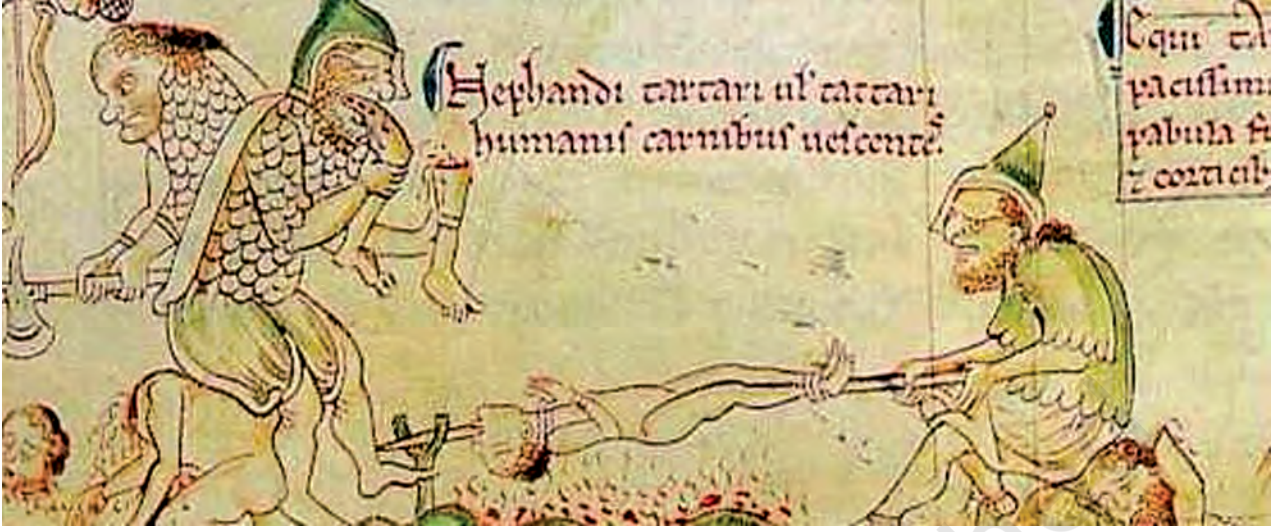 Nephandi tartari ul' tattari
humanis carnibus uescentes.
Equi
pacissimi
pabula
z corticib